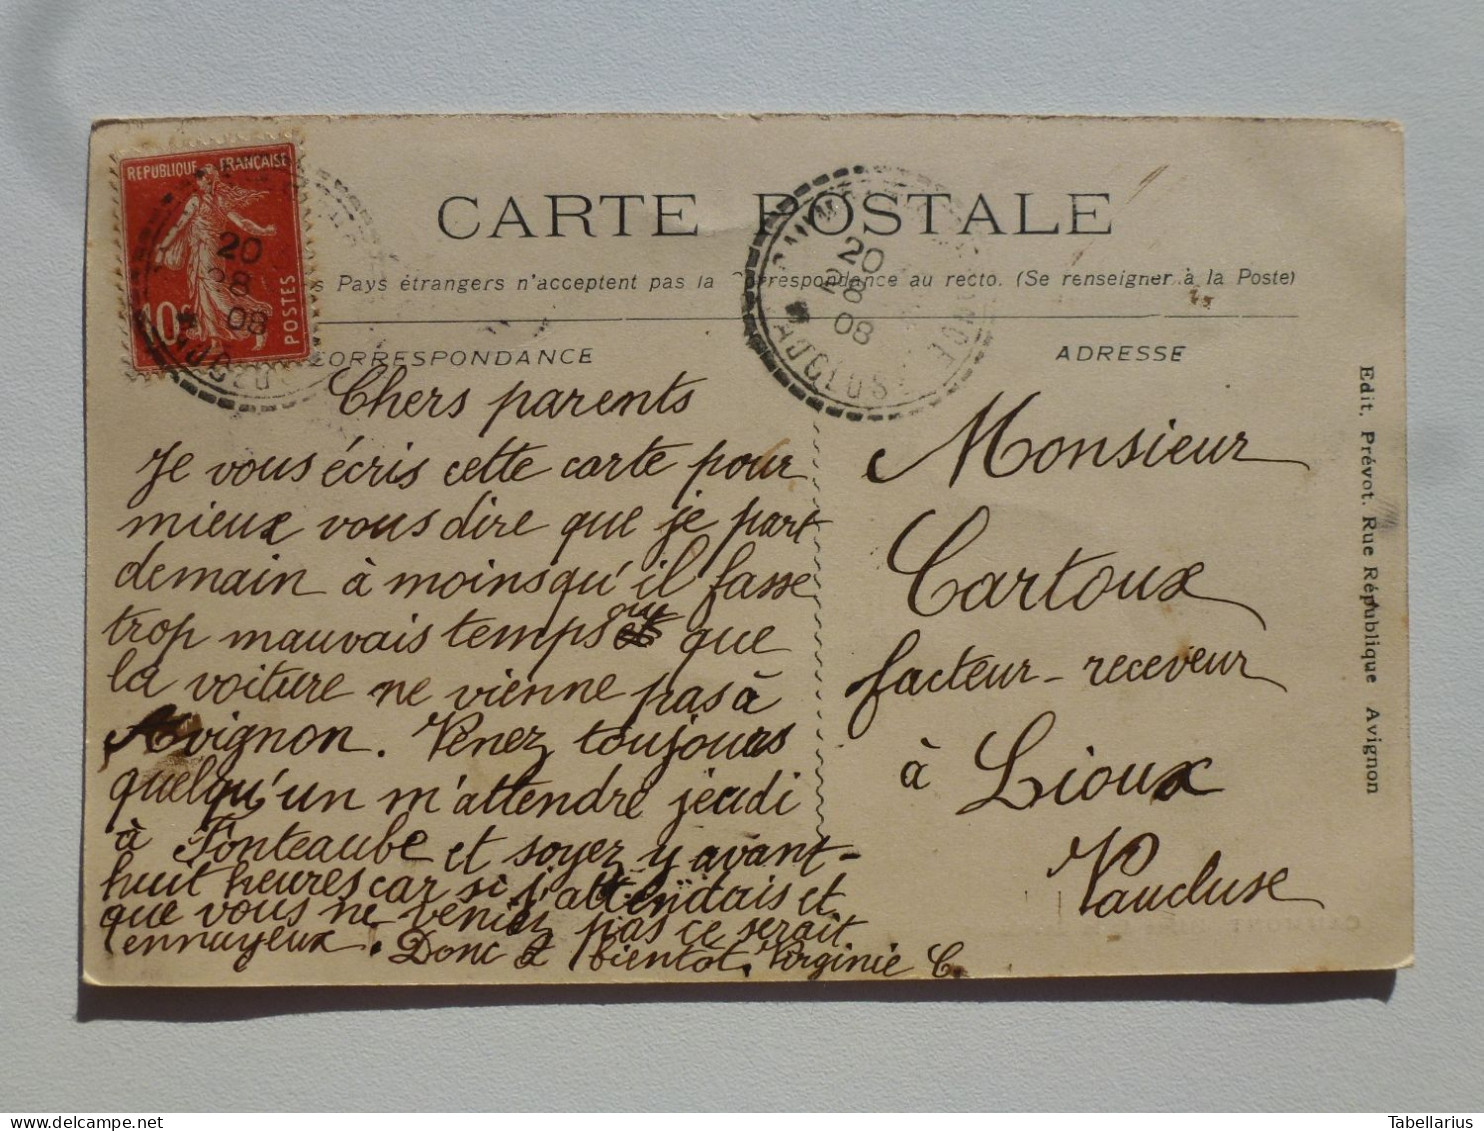 REPUBLIQUE FRANÇAISE
10c
POSTES
20
28
08
CARTE POSTALE
20
28
08
VAUCLUSE
Pays étrangers n'acceptent pas la Correspondance au recto. (Se renseigner à la Poste)
CORRESPONDANCE
ADRESSE
Chers parents
Je vous écris cette carte pour
mieux vous dire que je part
demain à moins qu'il fasse
trop mauvais temps ou que
la voiture ne vienne pas à
Avignon. Venez toujours
quelqu'un m'attendre jeudi
à Fonteaube et soyez y avant
huit heures car si j'attendais et
que vous ne veniez pas ce serait
ennuyeux. Donc à bientôt. Virginie C.
Monsieur
Cartoux
facteur-receveur
à Lioux
Vaucluse
Edit. Prévot. Rue République Avignon
Tabellarius